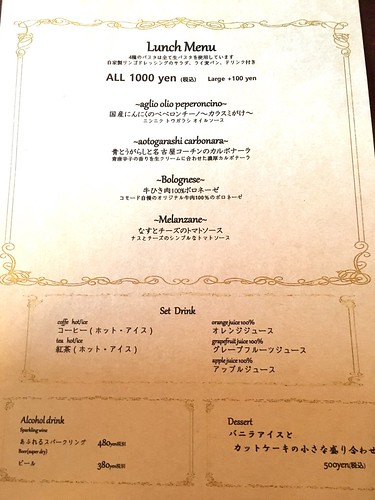 Lunch Menu
4種のパスタは全て生パスタを使用しています
自家製リンゴドレッシングのサラダ、ライ麦パン、ドリンク付き
ALL 1000 yen (税込) Large +100 yen
~aglio olio peperoncino~
国産にんにくのペペロンチーノ〜カラスミがけ〜
ニンニク トウガラシ オイルソース
~aotogarashi carbonara~
青とうがらしと名古屋コーチンのカルボナーラ
青唐辛子の香りを生クリームに合わせた濃厚カルボナーラ
~Bolognese~
牛ひき肉100%ボロネーゼ
コモード自慢のオリジナル牛肉100%のボロネーゼ
~Melanzane~
なすとチーズのトマトソース
ナスとチーズのシンプルなトマトソース
Set Drink
coffe hot/ice
コーヒー ( ホット・アイス )
tea hot/ice
紅茶 ( ホット・アイス )
orange juice 100%
オレンジジュース
grapefruit juice 100%
グレープフルーツジュース
apple juice 100%
アップルジュース
Alcohol drink
Sparkling wine
あふれるスパークリング 480yen税別
Beer(super dry)
ビール 380yen税別
Dessert
バニラアイスと
カットケーキの小さな盛り合わせ
500yen(税込)